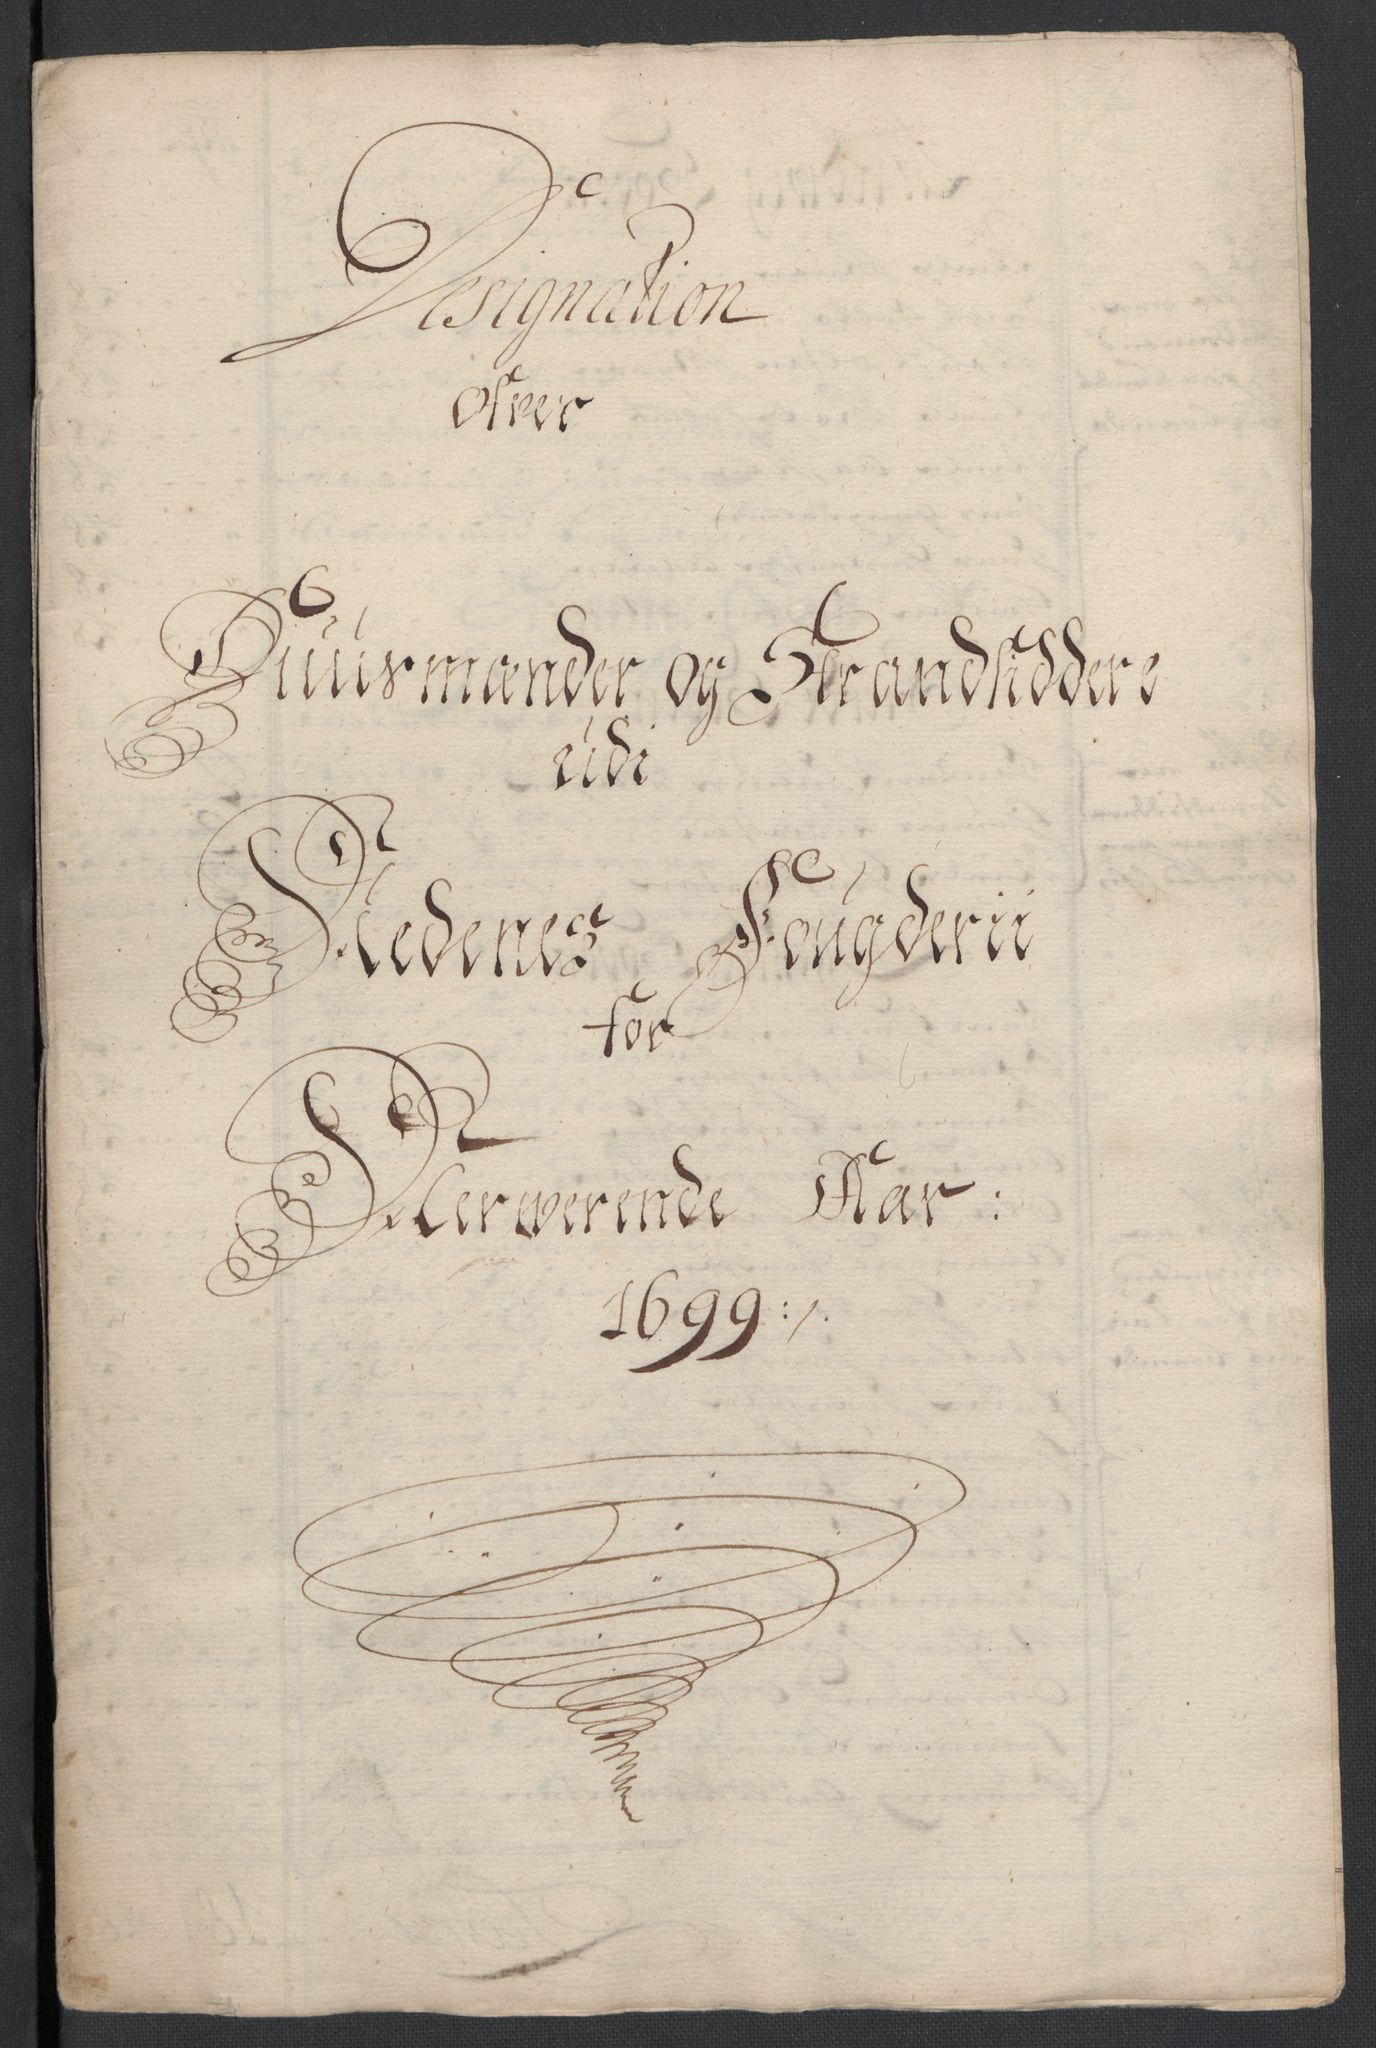 Designation
ofver
Huusmænder og Strandsiddere
udi
Nedenes Fougderii
for
Nerwerende Aar:
1699:/.